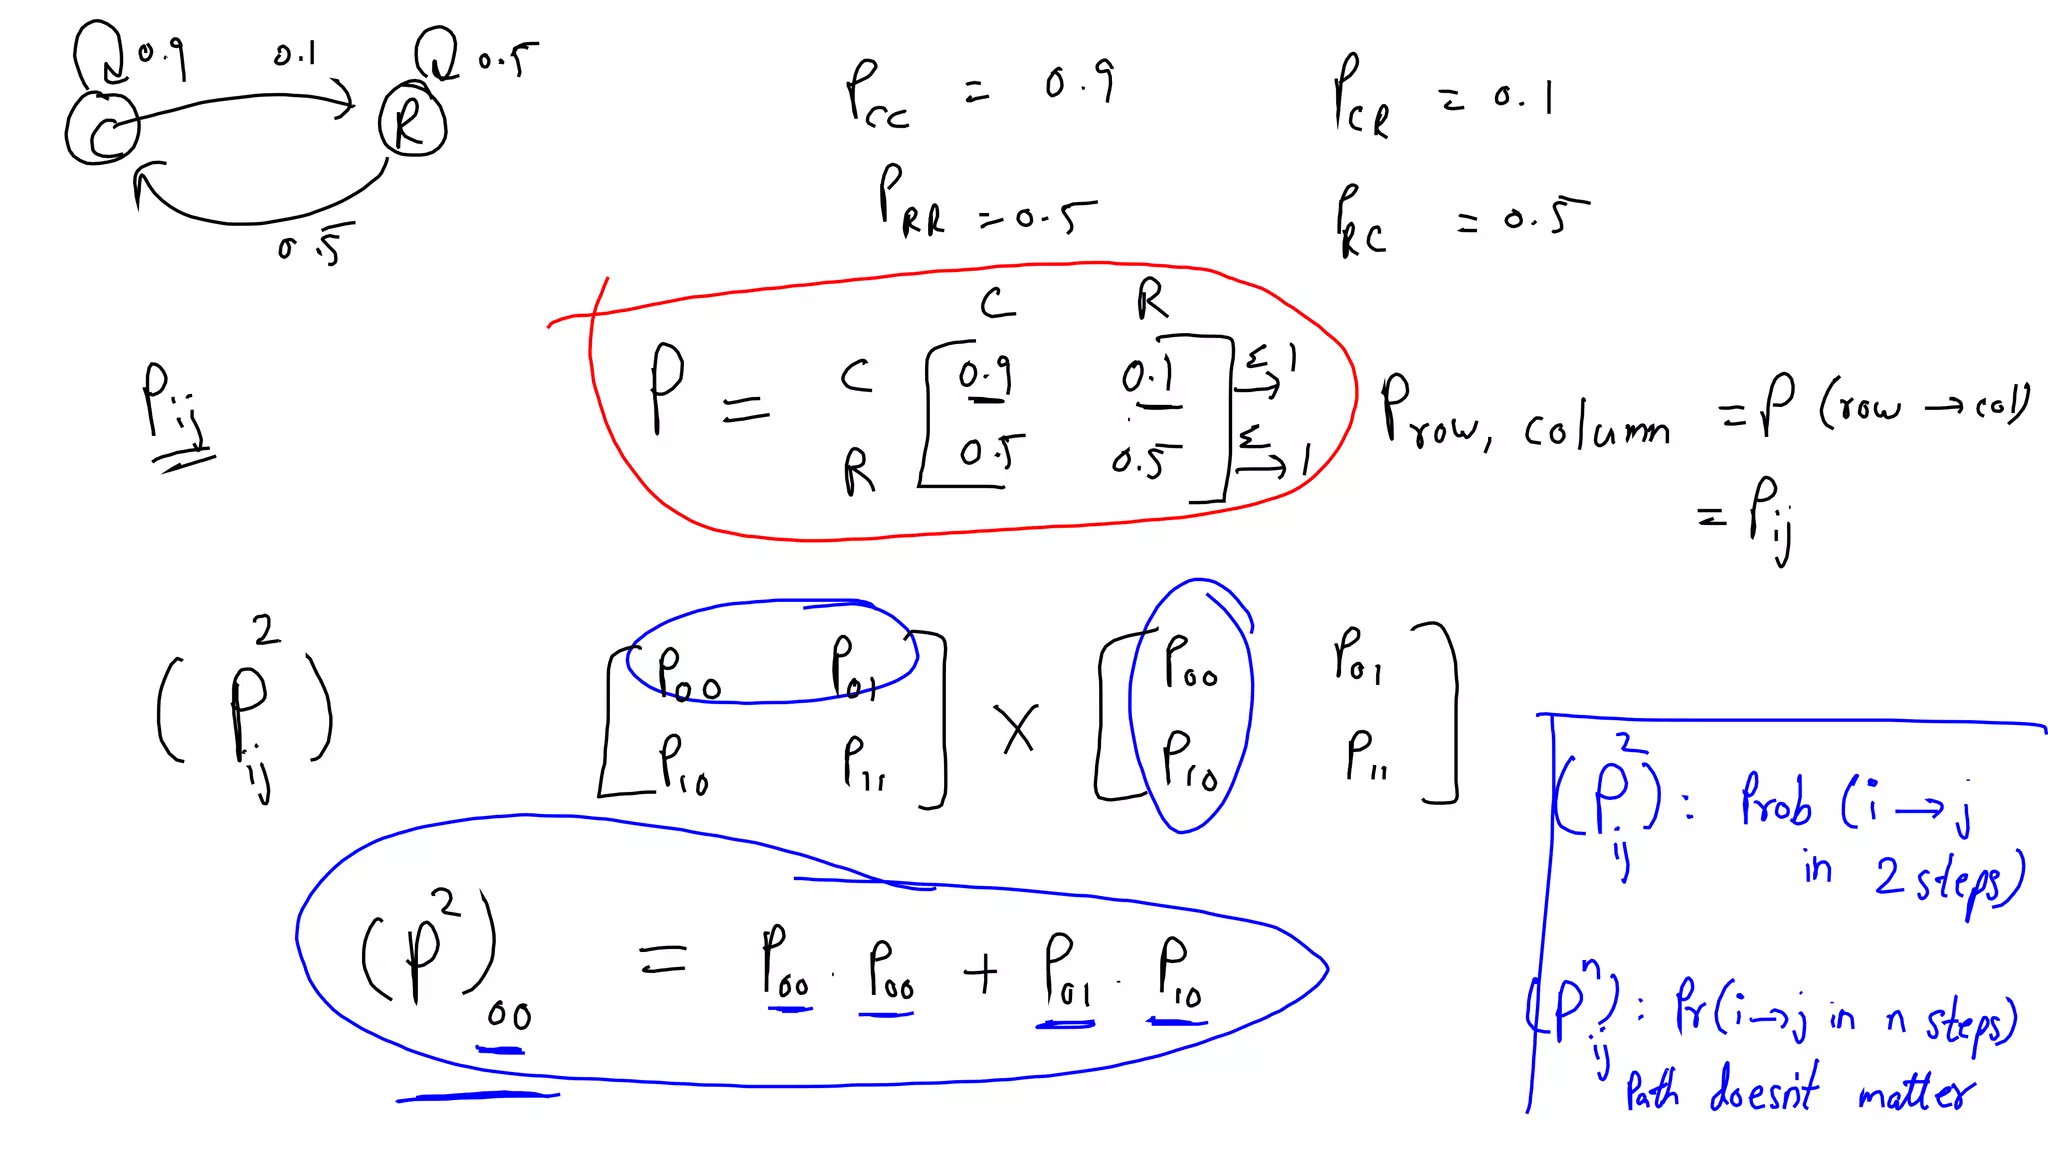 0.9 0.1 0.5
C R
0.5
P_CC = 0.9 P_CR = 0.1
P_RR = 0.5 P_RC = 0.5
C R
P_ij P = C [ 0.9 0.1 ] Σ→ 1
R [ 0.5 0.5 ] Σ→ 1
P_row, column = P (row → col)
= P_ij
(P²_ij) [ P_00 P_01 ] × [ P_00 P_01 ]
[ P_10 P_11 ] [ P_10 P_11 ]
(P²)_00 = P_00 · P_00 + P_01 · P_10
(P²_ij) : Prob (i → j
in 2 steps)
(Pⁿ_ij) : Pr(i → j in n steps)
Path doesn't matter